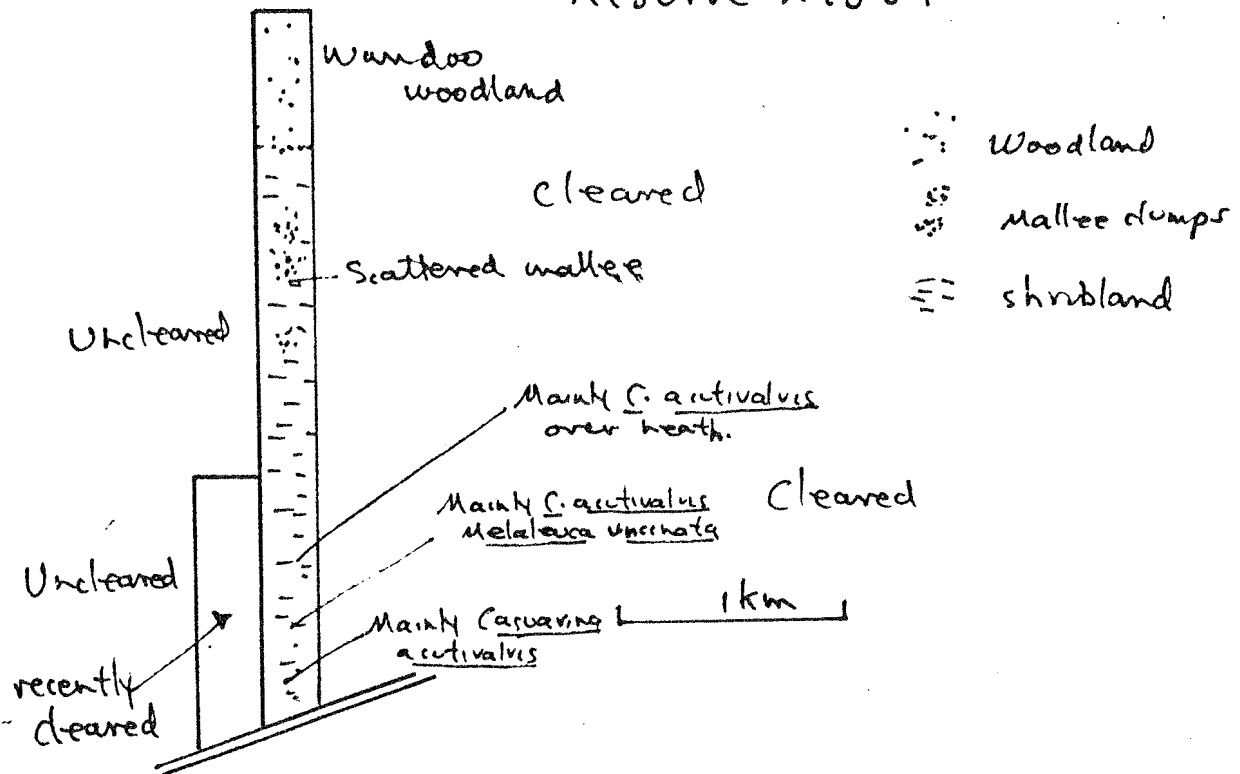 Wandoo
woodland
Woodland
Cleared
Mallee clumps
Scattered mallee
shrubland
Uncleared
Mainly C. acutivalvis
over heath.
Mainly C. acutivalvis
Melaleuca uncinata
Cleared
Uncleared
1km
Mainly Casuarina
acutivalvis
recently
cleared